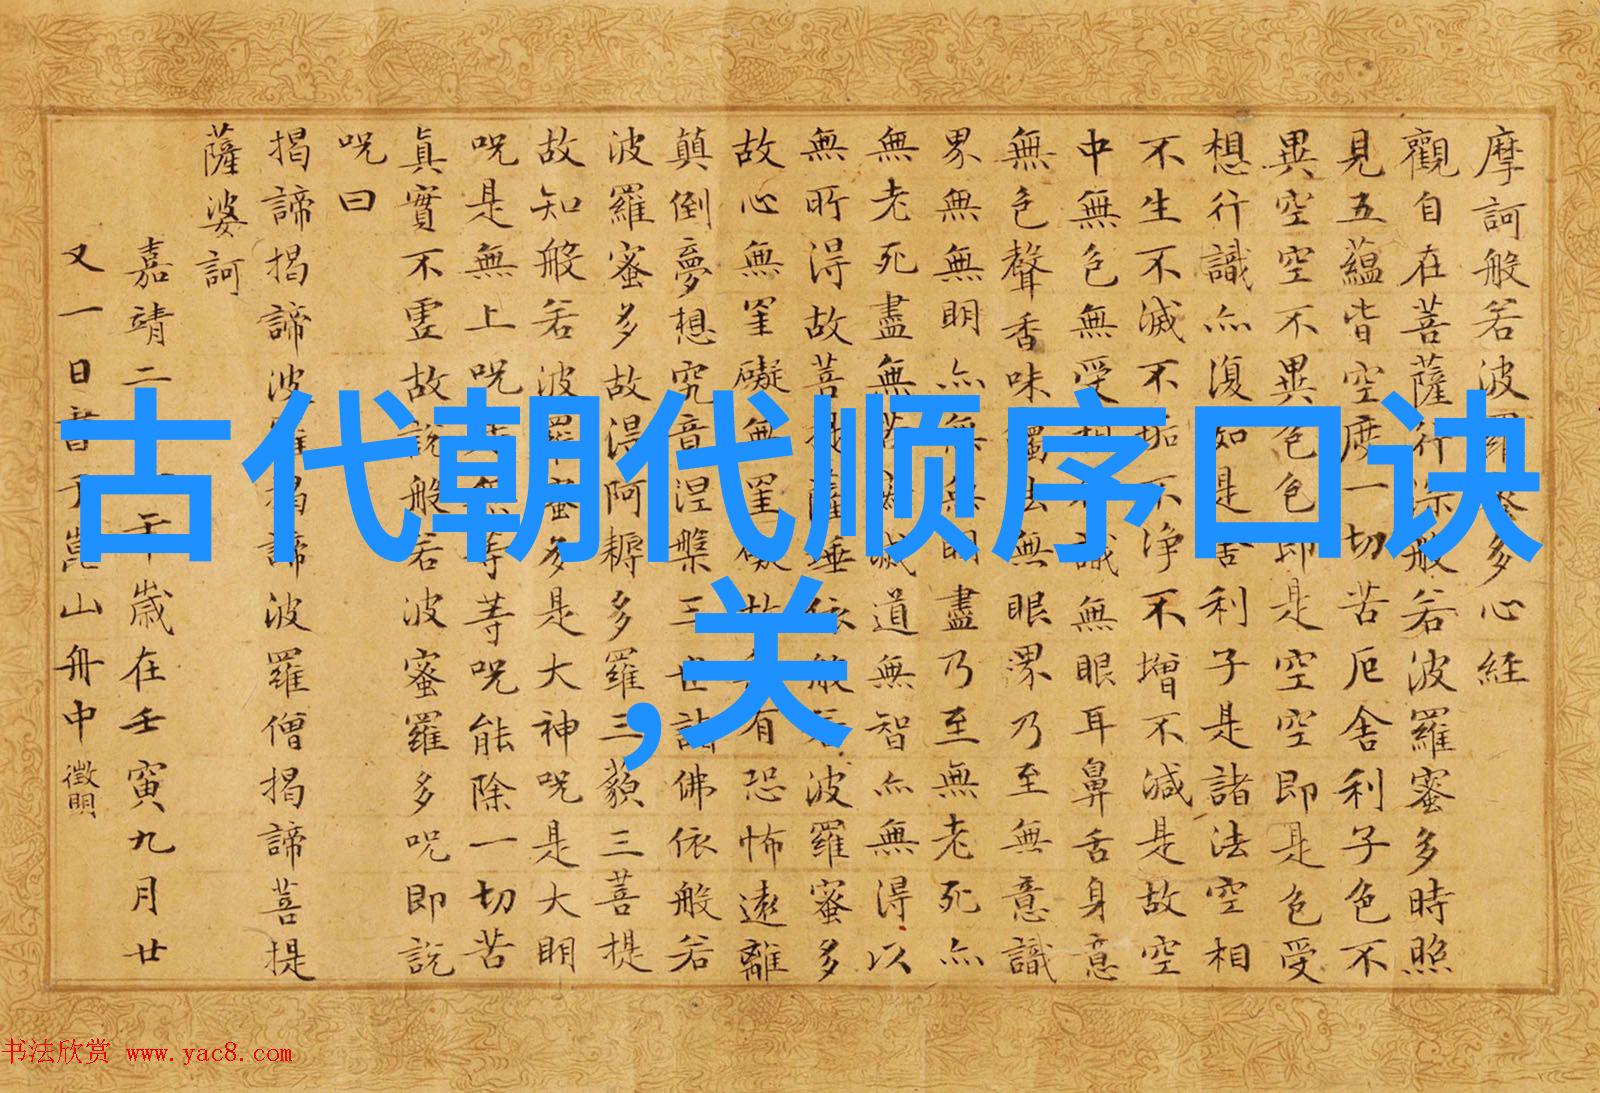 古代朝代顺序口诀
,关
摩訶般若波羅蜜多心経
觀自在菩薩行深般若波羅蜜多時照
見五蘊皆空度一切苦厄舍利子色不
異空空不異色色即是空空即是色受
想行識亦復如是舍利子是諸法空相
不生不滅不垢不浄不增不減是故空
中無色無受想行識無眼耳鼻舌身意
無色聲香味觸法無眼界乃至無意識
界無無明亦無無明盡乃至無老死亦
無老死盡無苦滅道無智亦無得以
無所得故菩提薩埵依般若波羅蜜多
故心無罣礙無罣礙故有恐怖遠離
顛倒夢想究竟涅槃三世諸佛依般若
波羅蜜多故得阿耨多羅三藐三菩提
故知般若波羅蜜多是大神呪是大明
呪是無上呪是無等等呪能除一切苦
真實不虛故說般若波羅蜜多呪即說
呪曰
揭諦揭諦波羅揭諦波羅僧揭諦菩提
薩婆訶
嘉靖二十年歲在壬寅九月廿
又一日書于崑山舟中 徵明
书法欣赏 www.yac8.com